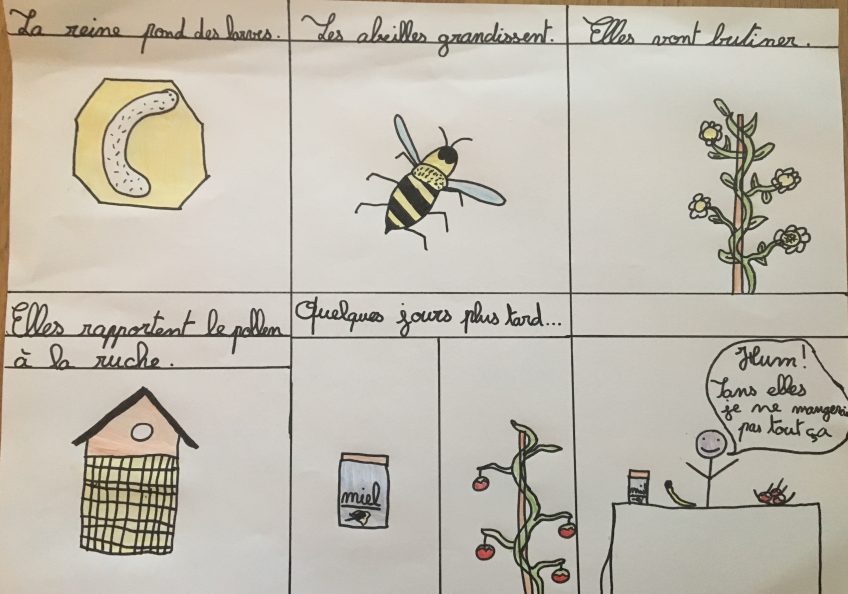 La reine pond des larves.
Les abeilles grandissent.
Elles vont butiner.
Elles rapportent le pollen
à la ruche.
Quelques jours plus tard...
miel
Hum!
Sans elles
je ne mangerais
pas tout ça
miel